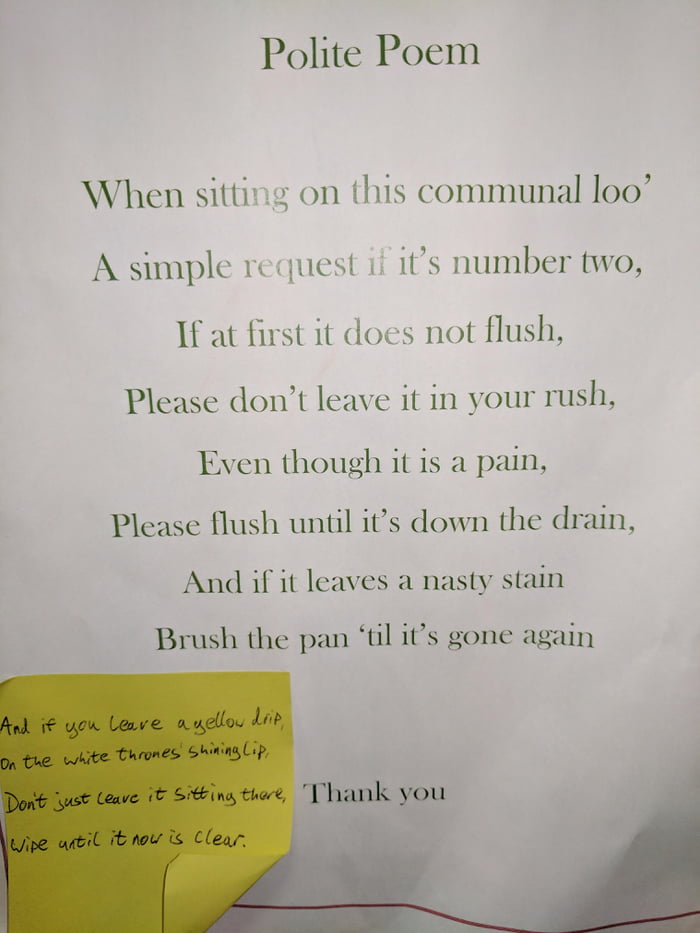 Polite Poem
When sitting on this communal loo’
A simple request if it’s number two,
If at first it does not flush,
Please don’t leave it in your rush,
Even though it is a pain,
Please flush until it’s down the drain,
And if it leaves a nasty stain
Brush the pan ‘til it’s gone again
And if you leave a yellow drip,
On the white thrones' shining lip,
Don't just leave it sitting there,
Wipe until it now is clear.
Thank you